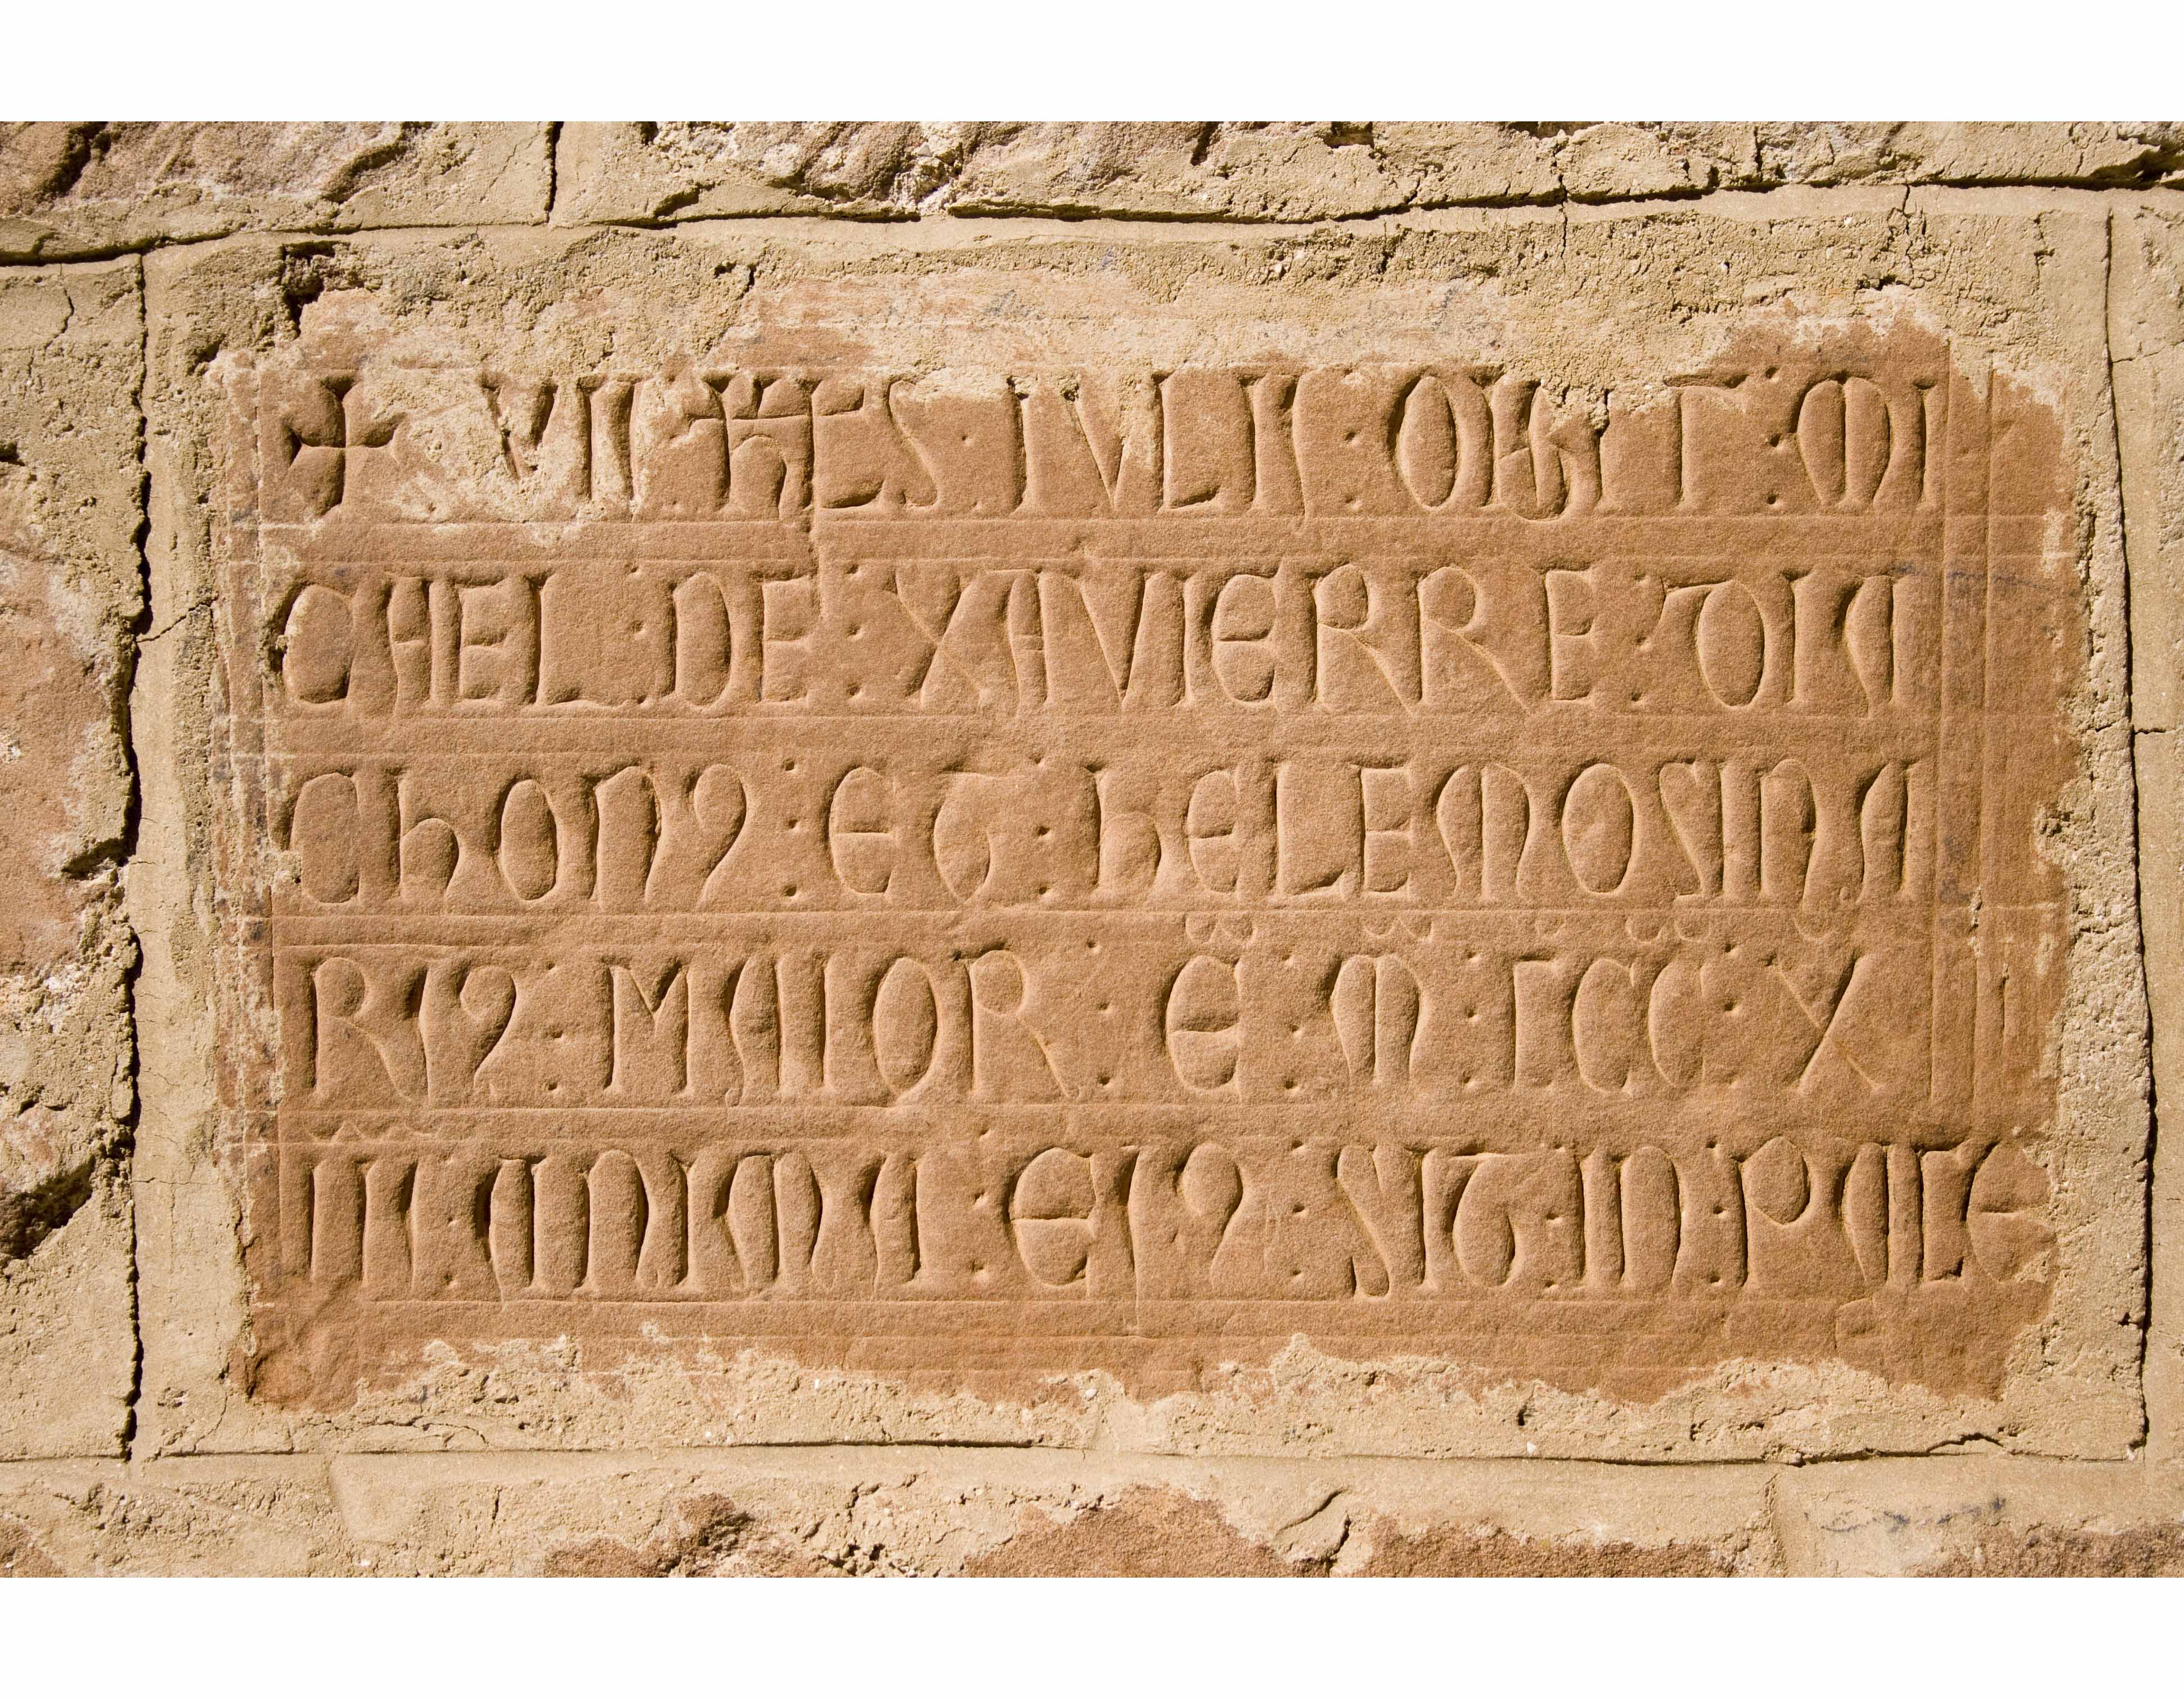 ✠ VII KLS · IULII : OBIIT : MI
CHAEL : DE : XAVIERRE : DIA
CHON9 : ET : HELEMOSINA
RI9 : MAIOR : E : M : CCC : X
II : ANIMA : EI9 : SIT : IN : PACE